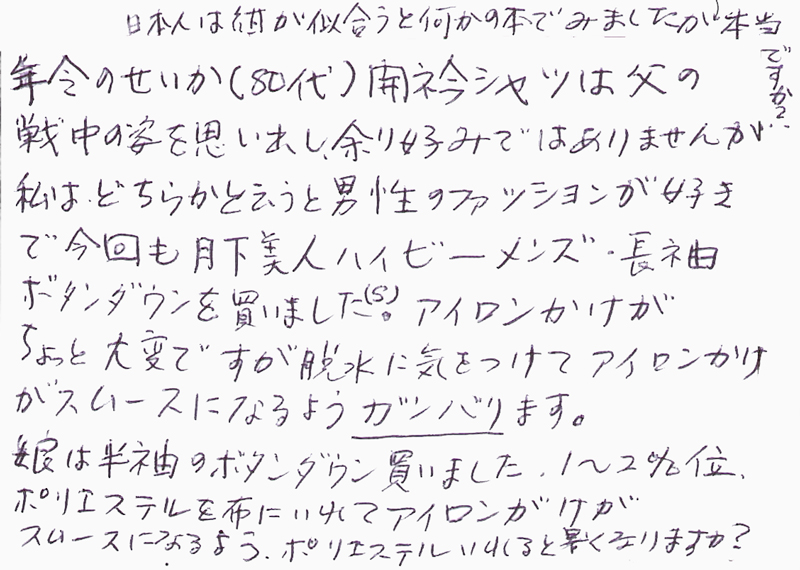 日本人は紺が似合うと何かの本でみましたが本当
ですか?
年令のせいか(80代)開衿シャツは父の
戦中の姿を思い出し、余り好みではありませんが
私は、どちらかと云うと男性のファッションが好き
で今回も月下美人ハイビーメンズ・長袖
ボタンダウンを買いました(S)。アイロンかけが
ちょっと大変ですが脱水に気をつけてアイロンかけ
がスムースになるようガンバリます。
娘は半袖のボタンダウン買いました、1〜2%位、
ポリエステルを布にいれてアイロンがけが
スムースになるよう、ポリエステルいれると暑くなりますか?